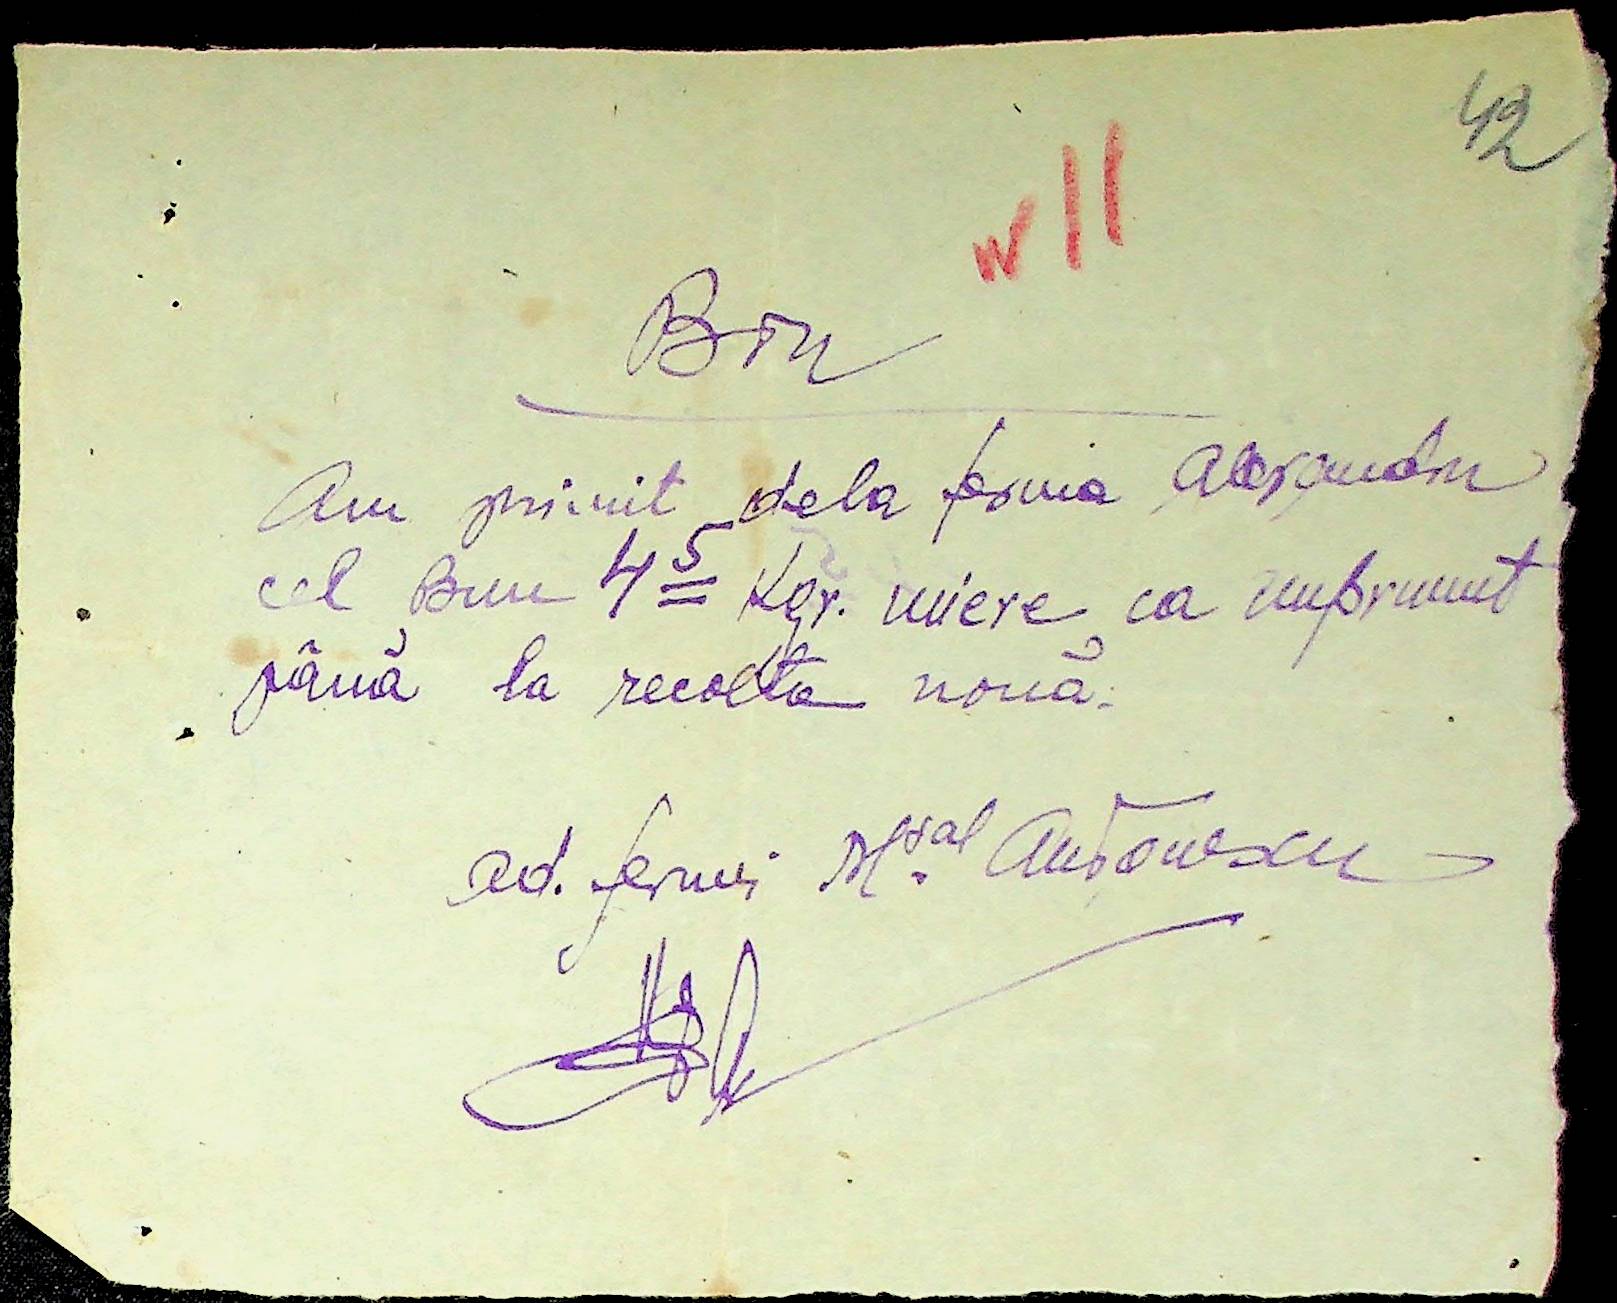 42
N 11
Bon
Am primit dela ferma Alexandru
cel Bun 4 5 Kgr. miere ca împrumut
până la recolta nouă.
ad. fermei M.șal Antonescu